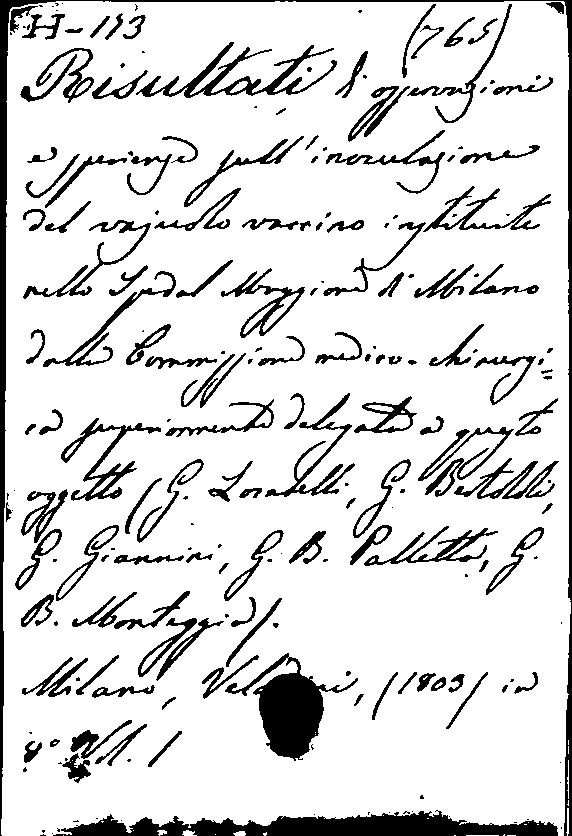 H-113 (765)
Risultati d'osservazioni
e sperienze sull'inoculazione
del vajuolo vaccino instituite
nello Spedal Maggiore di Milano
dalla Commissione medico-chirurgi=
ca superiormente delegata a questo
oggetto (G. Locatelli, G. Bertololi,
G. Giannini, G. B. Palletta, G.
B. Monteggia).
Milano, (1803) in
8° Vol. 1